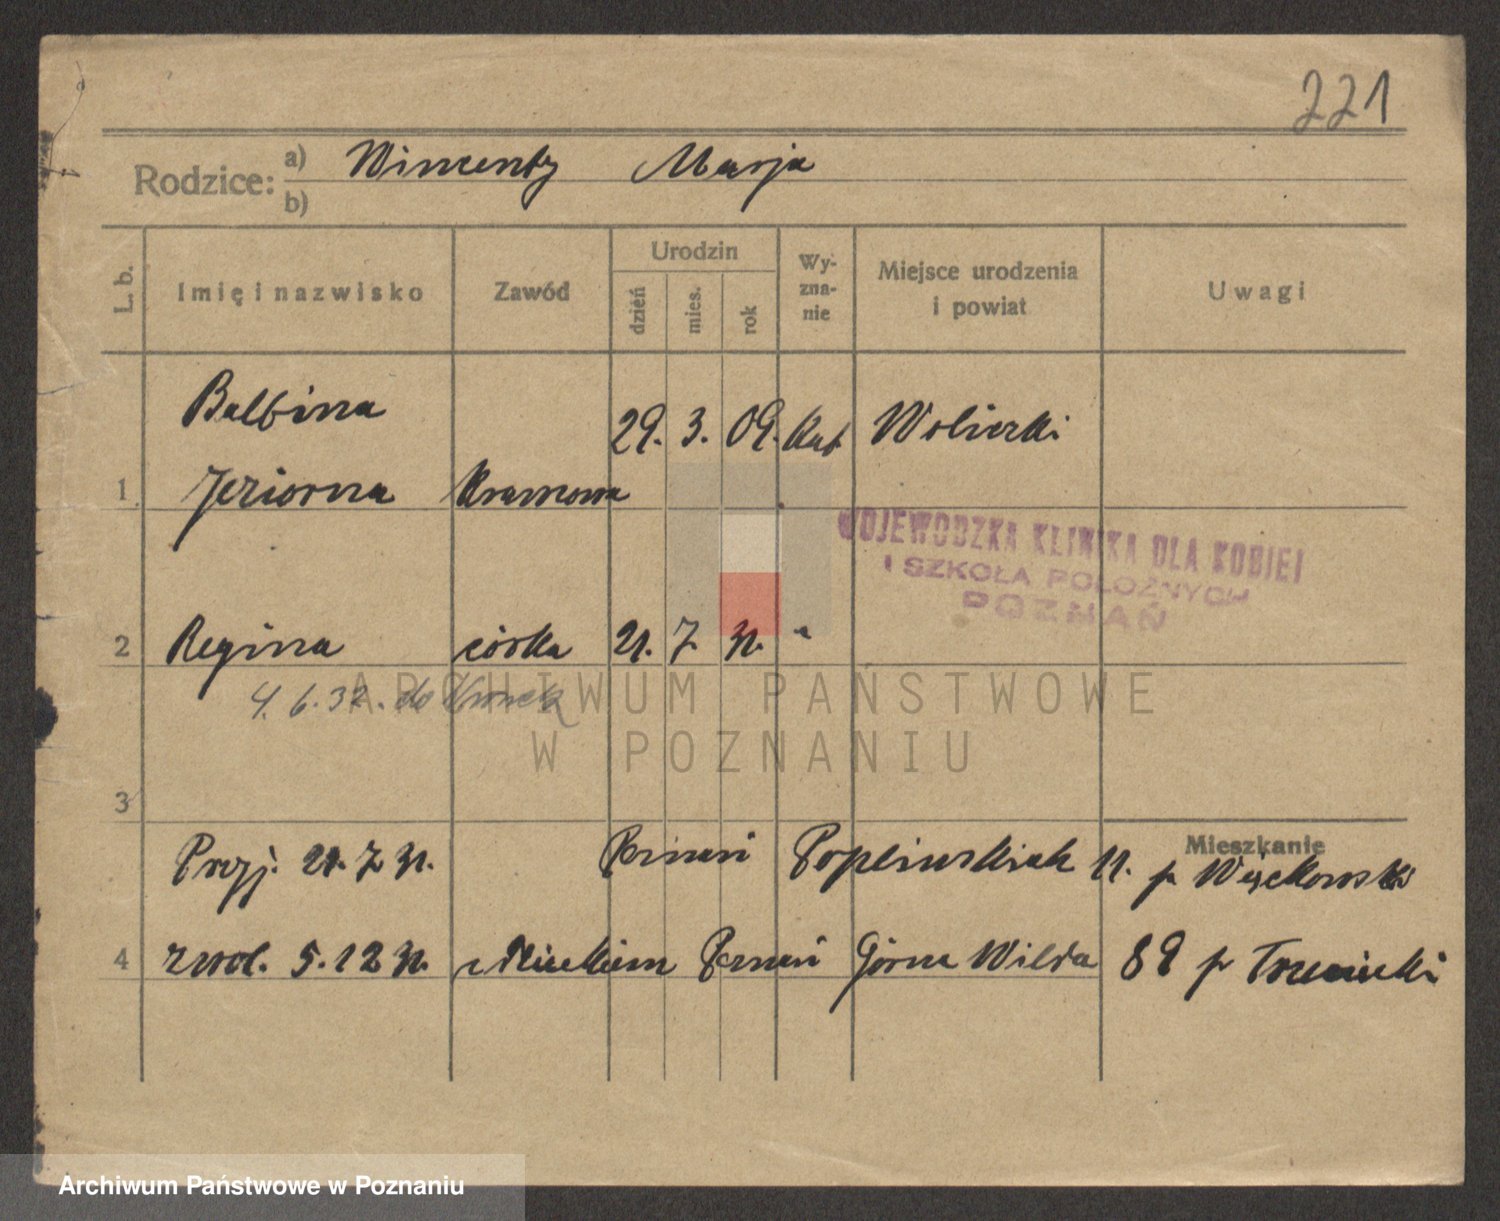 221
Rodzice: a) Wincenty Marja
b)
L. b.
Imię i nazwisko
Zawód
Urodzin
dzień
mies.
rok
Wy-
zna-
nie
Miejsce urodzenia
i powiat
Uwagi
Balbina
29. 3. 09. kat
1 Jeziorna Krawcowa
WOJEWÓDZKA KLINIKA DLA KOBIET
I SZKOŁA POŁOŻNYCH
POZNAŃ
2 Regina córka 21. 7 31. "
4. 6. 32. do Wronek
ARCHIWUM PAŃSTWOWE
W POZNANIU
3
Mieszkanie
Przyj. 21. 7 31. Poznań 11. p Więckowski
4 zwol. 5. 12 31. Poznań Górna Wilda 89 p
Archiwum Państwowe w Poznaniu